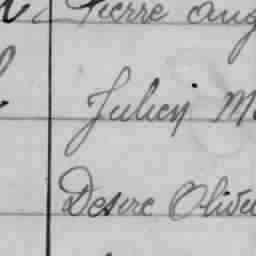 Pierre Aug
Julien M
Desire Olive